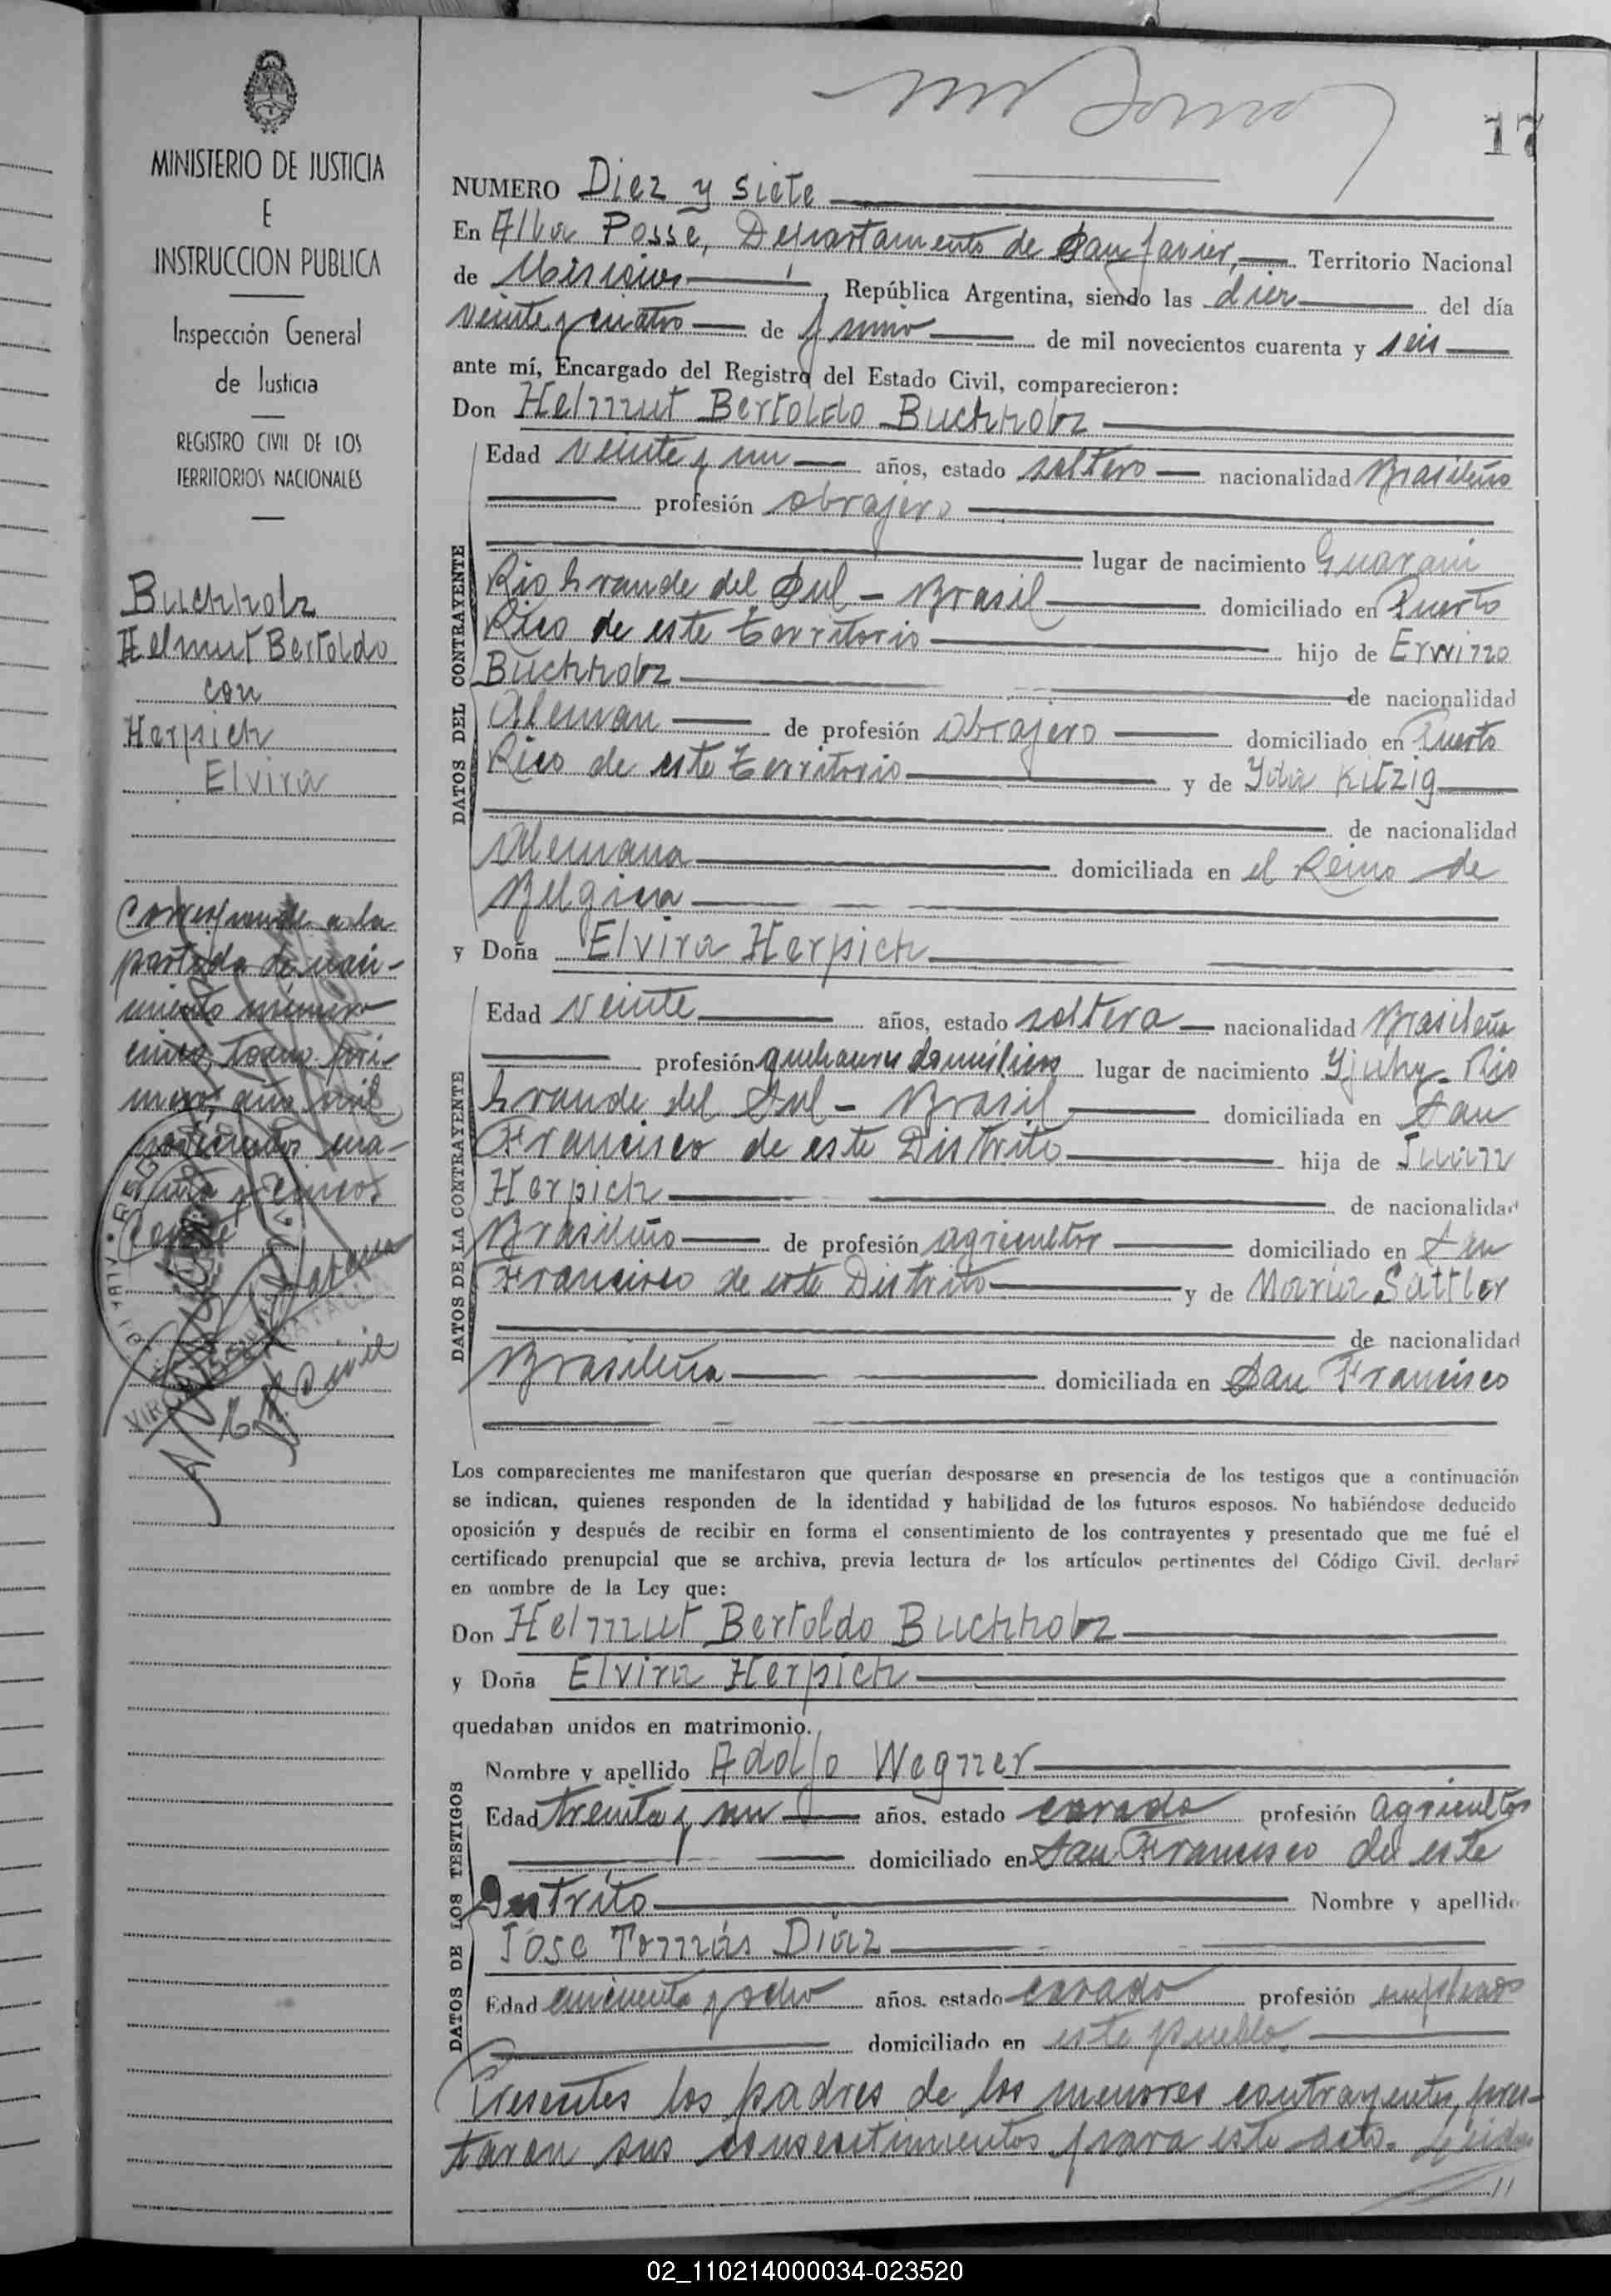 17
MINISTERIO DE JUSTICIA
E
INSTRUCCION PUBLICA
Inspección General
de Justicia
REGISTRO CIVIL DE LOS
TERRITORIOS NACIONALES
Buchholz
Helmut Bertoldo
con
Herpich
Elvira
Corresponde a la
partida de naci-
miento número
cinco, tomo pri-
mero, año mil
novecientos cua-
renta y cinco.
Conste
NUMERO Diez y siete
En Alba Posse, Departamento de San Javier, Territorio Nacional
de Misiones, República Argentina, siendo las diez del día
veinte y cuatro de Junio de mil novecientos cuarenta y seis
ante mí, Encargado del Registro del Estado Civil, comparecieron:
Don Helmut Bertoldo Buchholz
DATOS DEL CONTRAYENTE
Edad veinte y un años, estado soltero nacionalidad Brasileño
profesión obrajero
lugar de nacimiento Guarani
Rio Grande del Sul - Brasil domiciliado en Puerto
Rico de este territorio hijo de Erwino
Buchholz de nacionalidad
Aleman de profesión obrajero domiciliado en Puerto
Rico de este territorio y de Ida Kitzig
de nacionalidad
Alemana domiciliada en el Reino de
Belgica
y Doña Elvira Herpich
DATOS DE LA CONTRAYENTE
Edad veinte años, estado soltera nacionalidad Brasileña
profesión quehaceres domésticos lugar de nacimiento Yjuhy - Rio
Grande del Sul - Brasil domiciliada en San
Francisco de este Distrito hija de Juan
Herpich de nacionalidad
Brasileño de profesión agricultor domiciliado en San
Francisco de este Distrito y de Maria Sattler
de nacionalidad
Brasileña domiciliada en San Francisco
Los comparecientes me manifestaron que querían desposarse en presencia de los testigos que a continuación
se indican, quienes responden de la identidad y habilidad de los futuros esposos. No habiéndose deducido
oposición y después de recibir en forma el consentimiento de los contrayentes y presentado que me fué el
certificado prenupcial que se archiva, previa lectura de los artículos pertinentes del Código Civil, declaré
en nombre de la Ley que:
Don Helmut Bertoldo Buchholz
y Doña Elvira Herpich
quedaban unidos en matrimonio.
DATOS DE LOS TESTIGOS
Nombre y apellido Adolfo Wegner
Edad treinta y un años, estado casado profesión agricultor
domiciliado en San Francisco de este
Distrito Nombre y apellido
José Tomás Díaz
Edad cincuenta y ocho años, estado casado profesión empleado
domiciliado en este pueblo.
Presentes los padres de los menores contrayentes, pres-
taron sus consentimientos para este acto. Leida
02_110214000034-023520